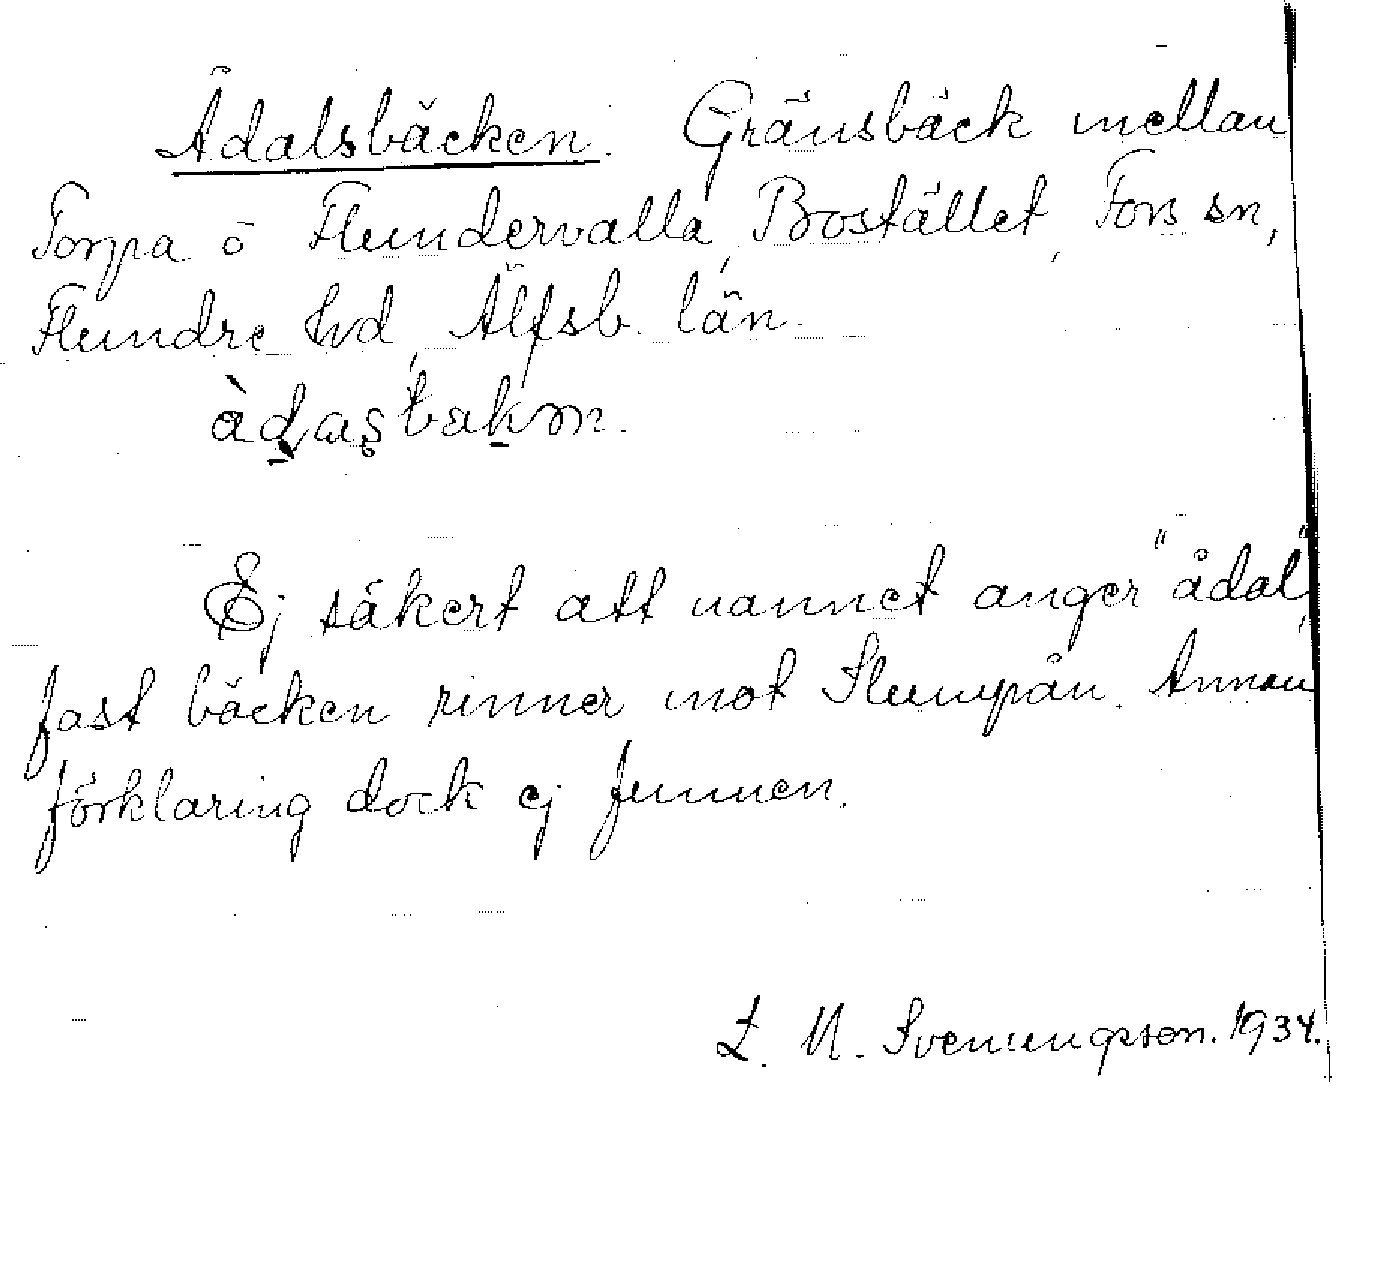 Ådalsbäcken. Gränsbäck mellan
Torpa o Flundervalla, Bostället, Fors sn,
Flundre hd, Älfsb. län.
àdasbakən.
Ej säkert att namnet anger "ådal",
fast bäcken rinner mot Slumpån. Annan
förklaring dock ej funnen.
L. M. Svenungsson. 1934.